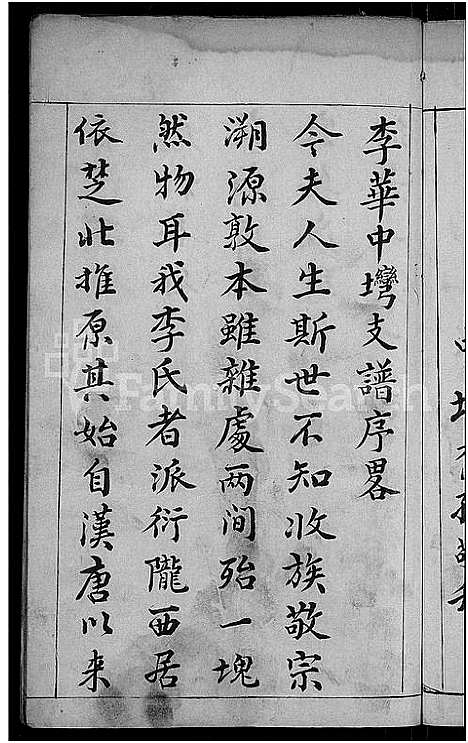 李華中塆支譜序畧
今夫人生斯世不知收族敬宗
溯源敦本雖雜處两间殆一塊
然物耳我李氏者派衍隴西居
依楚北推原其始自漢唐以来
FamilySearch